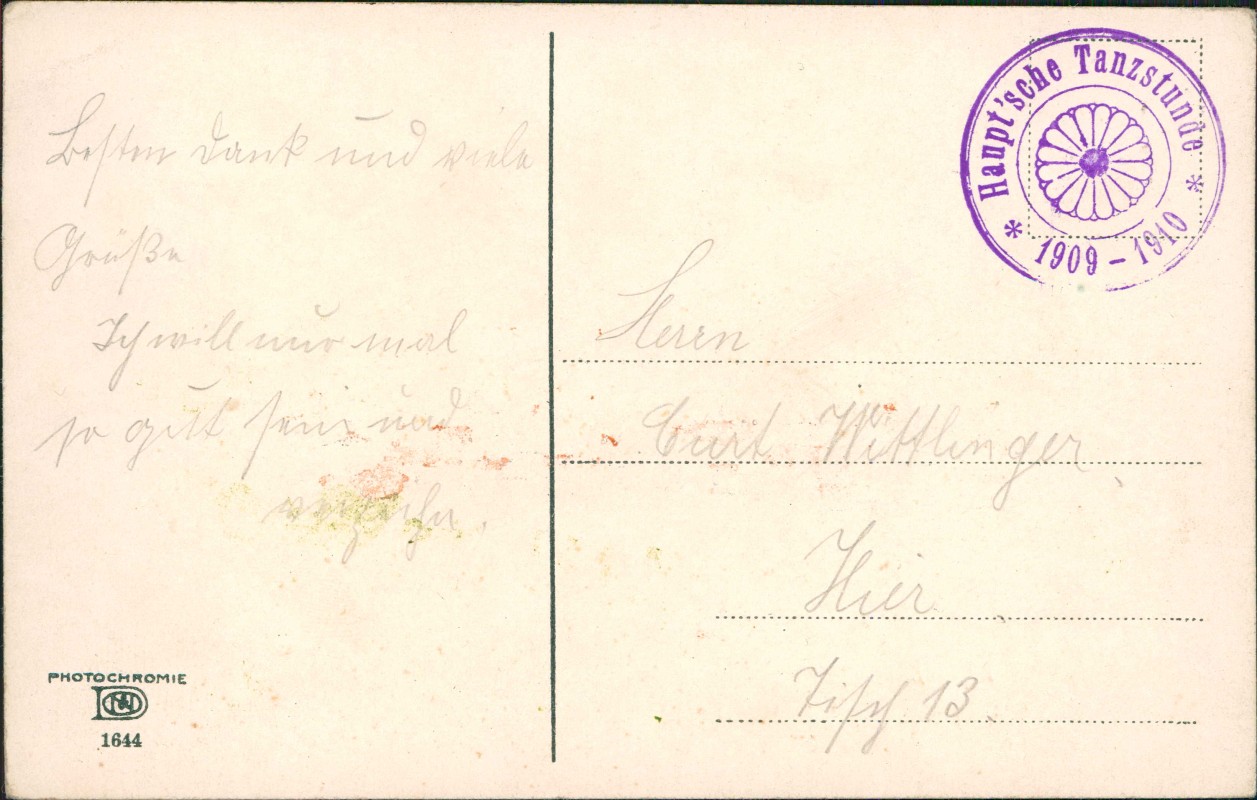 Besten Dank und viele
Grüße
Ich will nur mal
so gut sein und
verzeihn.
* Haupt'sche Tanzstunde *
1909 – 1910
Herrn
Curt Wittlinger
Hier
Tisch 13.
PHOTOCHROMIE
1644